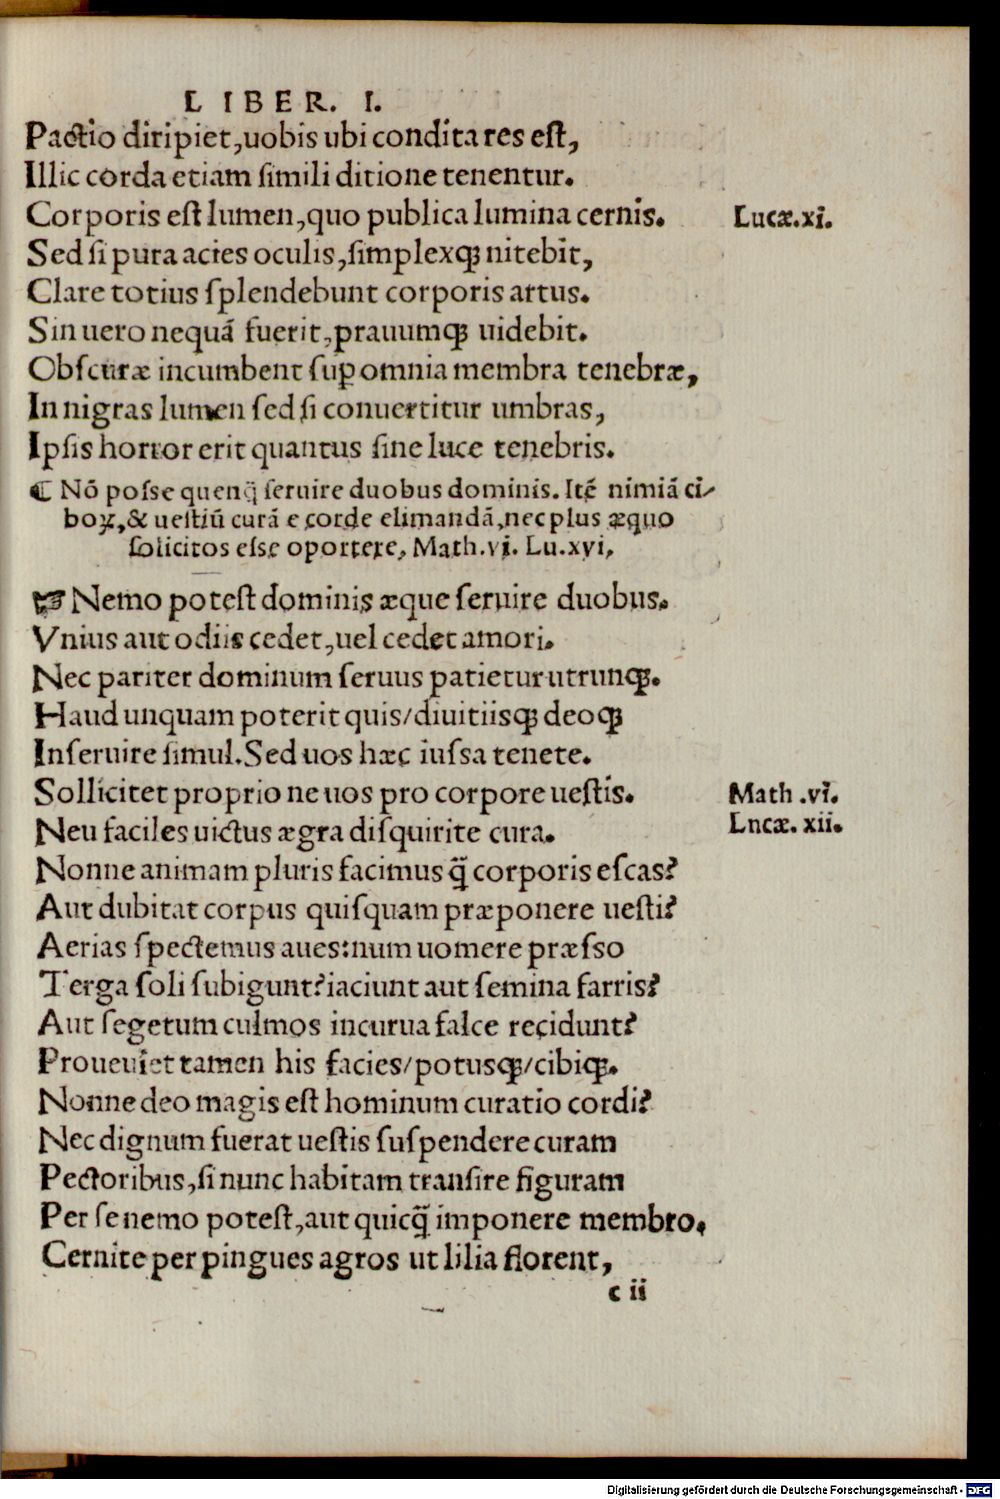 LIBER. I.
Pactio diripiet,uobis ubi condita res est,
Illic corda etiam simili ditione tenentur.
Corporis est lumen,quo publica lumina cernis. Lucæ.xi.
Sed si pura acies oculis,simplexqꝫ nitebit,
Clare totius splendebunt corporis artus.
Sin uero nequã fuerit,prauumqꝫ uidebit.
Obscuræ incumbent suꝑ omnia membra tenebræ,
In nigras lumen sed si conuertitur umbras,
Ipsis horror erit quantus sine luce tenebris.
⸿ Nõ posse quenq̃ seruire duobus dominis. Itẽ nimiã ci⸗
boꝝ,& uestiũ curã e corde elimandã,nec plus æquo
solicitos esse oportere, Math.vi. Lu.xvi,
☞ Nemo potest dominis æque seruire duobus.
Vnius aut odiis cedet,uel cedet amori.
Nec pariter dominum seruus patietur utrunqꝫ.
Haud unquam poterit quis/diuitiisqꝫ deoqꝫ
Inseruire simul.Sed uos hæc iussa tenete.
Sollicitet proprio ne uos pro corpore uestis. Math .vi.
Neu faciles uictus ægra disquirite cura. Lncæ. xii.
Nonne animam pluris facimus q̃ corporis escas?
Aut dubitat corpus quisquam præponere uesti?
Aerias spectemus aues:num uomere præsso
Terga soli subigunt?iaciunt aut semina farris?
Aut segetum culmos incurua falce recidunt?
Proueniet tamen his facies/potusqꝫ/cibiqꝫ.
Nonne deo magis est hominum curatio cordi?
Nec dignum fuerat uestis suspendere curam
Pectoribus,si nunc habitam transire figuram
Per se nemo potest,aut quicq̃ imponere membro,
Cernite per pingues agros ut lilia florent,
c ii
Digitalisierung gefördert durch die Deutsche Forschungsgemeinschaft - DFG